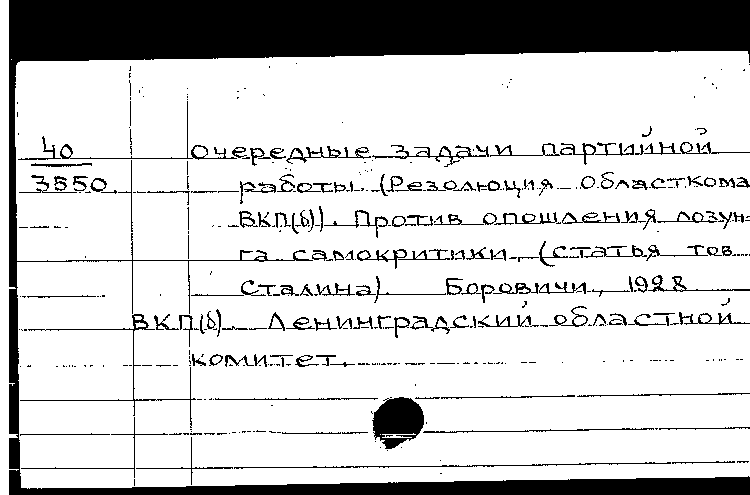 40 Очередные задачи партийной
3550. работы. (Резолюция Областкома
ВКП(б)). Против опошления лозун-
га самокритики. (статья тов.
Сталина). Боровичи, 1928
ВКП(б). Ленинградский областной
комитет.